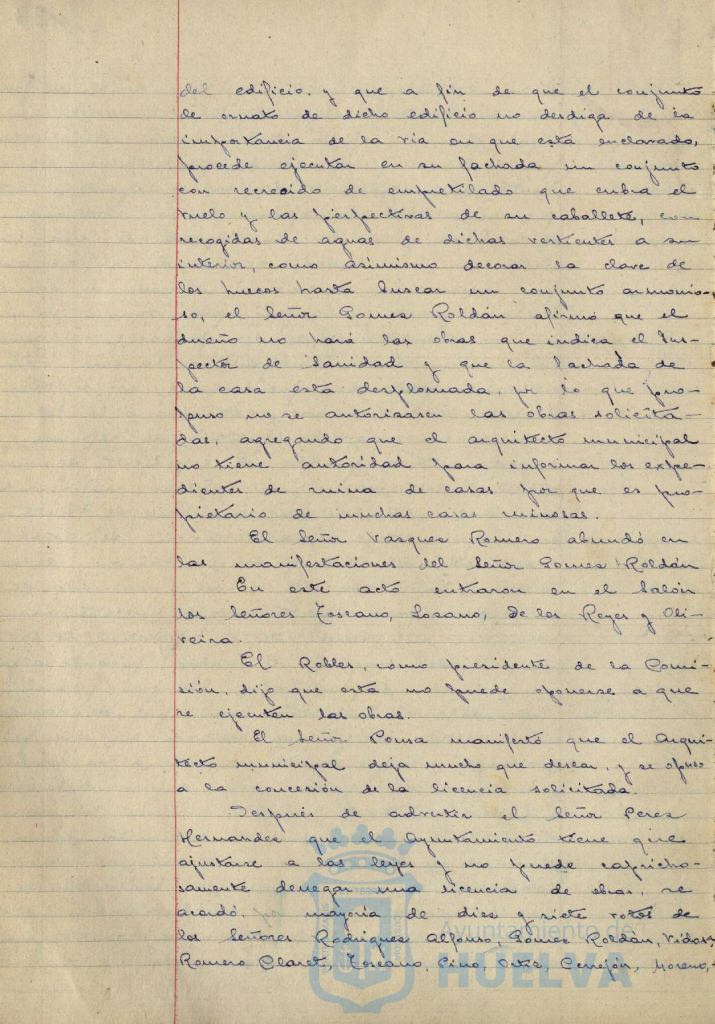 del edificio, y que a fin de que el conjunto
de ornato de dicho edificio no desdiga de la
importancia de la via en que está enclavado,
procede ejecutar en su fachada un conjunto
con recrecido de empretilado que cubra el
vuelo y las perspectivas de su caballete, con
recogidas de aguas de dichas vertientes a su
interior, como asimismo decorar la clave de
los huecos hasta buscar un conjunto armonio-
so, el Señor Gomez Roldán afirmó que el
dueño no hará las obras que indica el Ins-
pector de Sanidad y que la fachada de
la casa está desplomada, pr lo que pro-
puso no se autorizasen las obras solicita-
das, agregando que el arquitecto municipal
no tiene autoridad para informar los expe-
dientes de ruina de casas por que es pro-
pietario de muchas casas ruinosas.
El Señor Vasquez Romero abundó en
las manifestaciones del Señor Gomez Roldán
En este acto entraron en el Salón
los Señores Toscano, Lozano, de los Reyes y Oli-
veira.
El Robles, como presidente de la Comi-
sión, dijo que esta no puede oponerse a que
se ejecuten las obras.
El Señor Ponsa manifestó que el Arqui-
tecto municipal deja mucho que desear, y se opuso
a la concesión de la licencia solicitada.
Después de advertir el Señor Perez
Hernandez que el Ayuntamiento tiene que
ajustarse a las leyes y no puede capricho-
samente denegar una licencia de obras, se
acordó, por mayoría de diez y siete votos de
los Señores Rodriguez Alfonso, Gomez Roldán, Vidosa,
Romero Claret, Toscano, Pino, Ortiz, Cerrejón, Moreno,
Ayuntamiento de
HUELVA